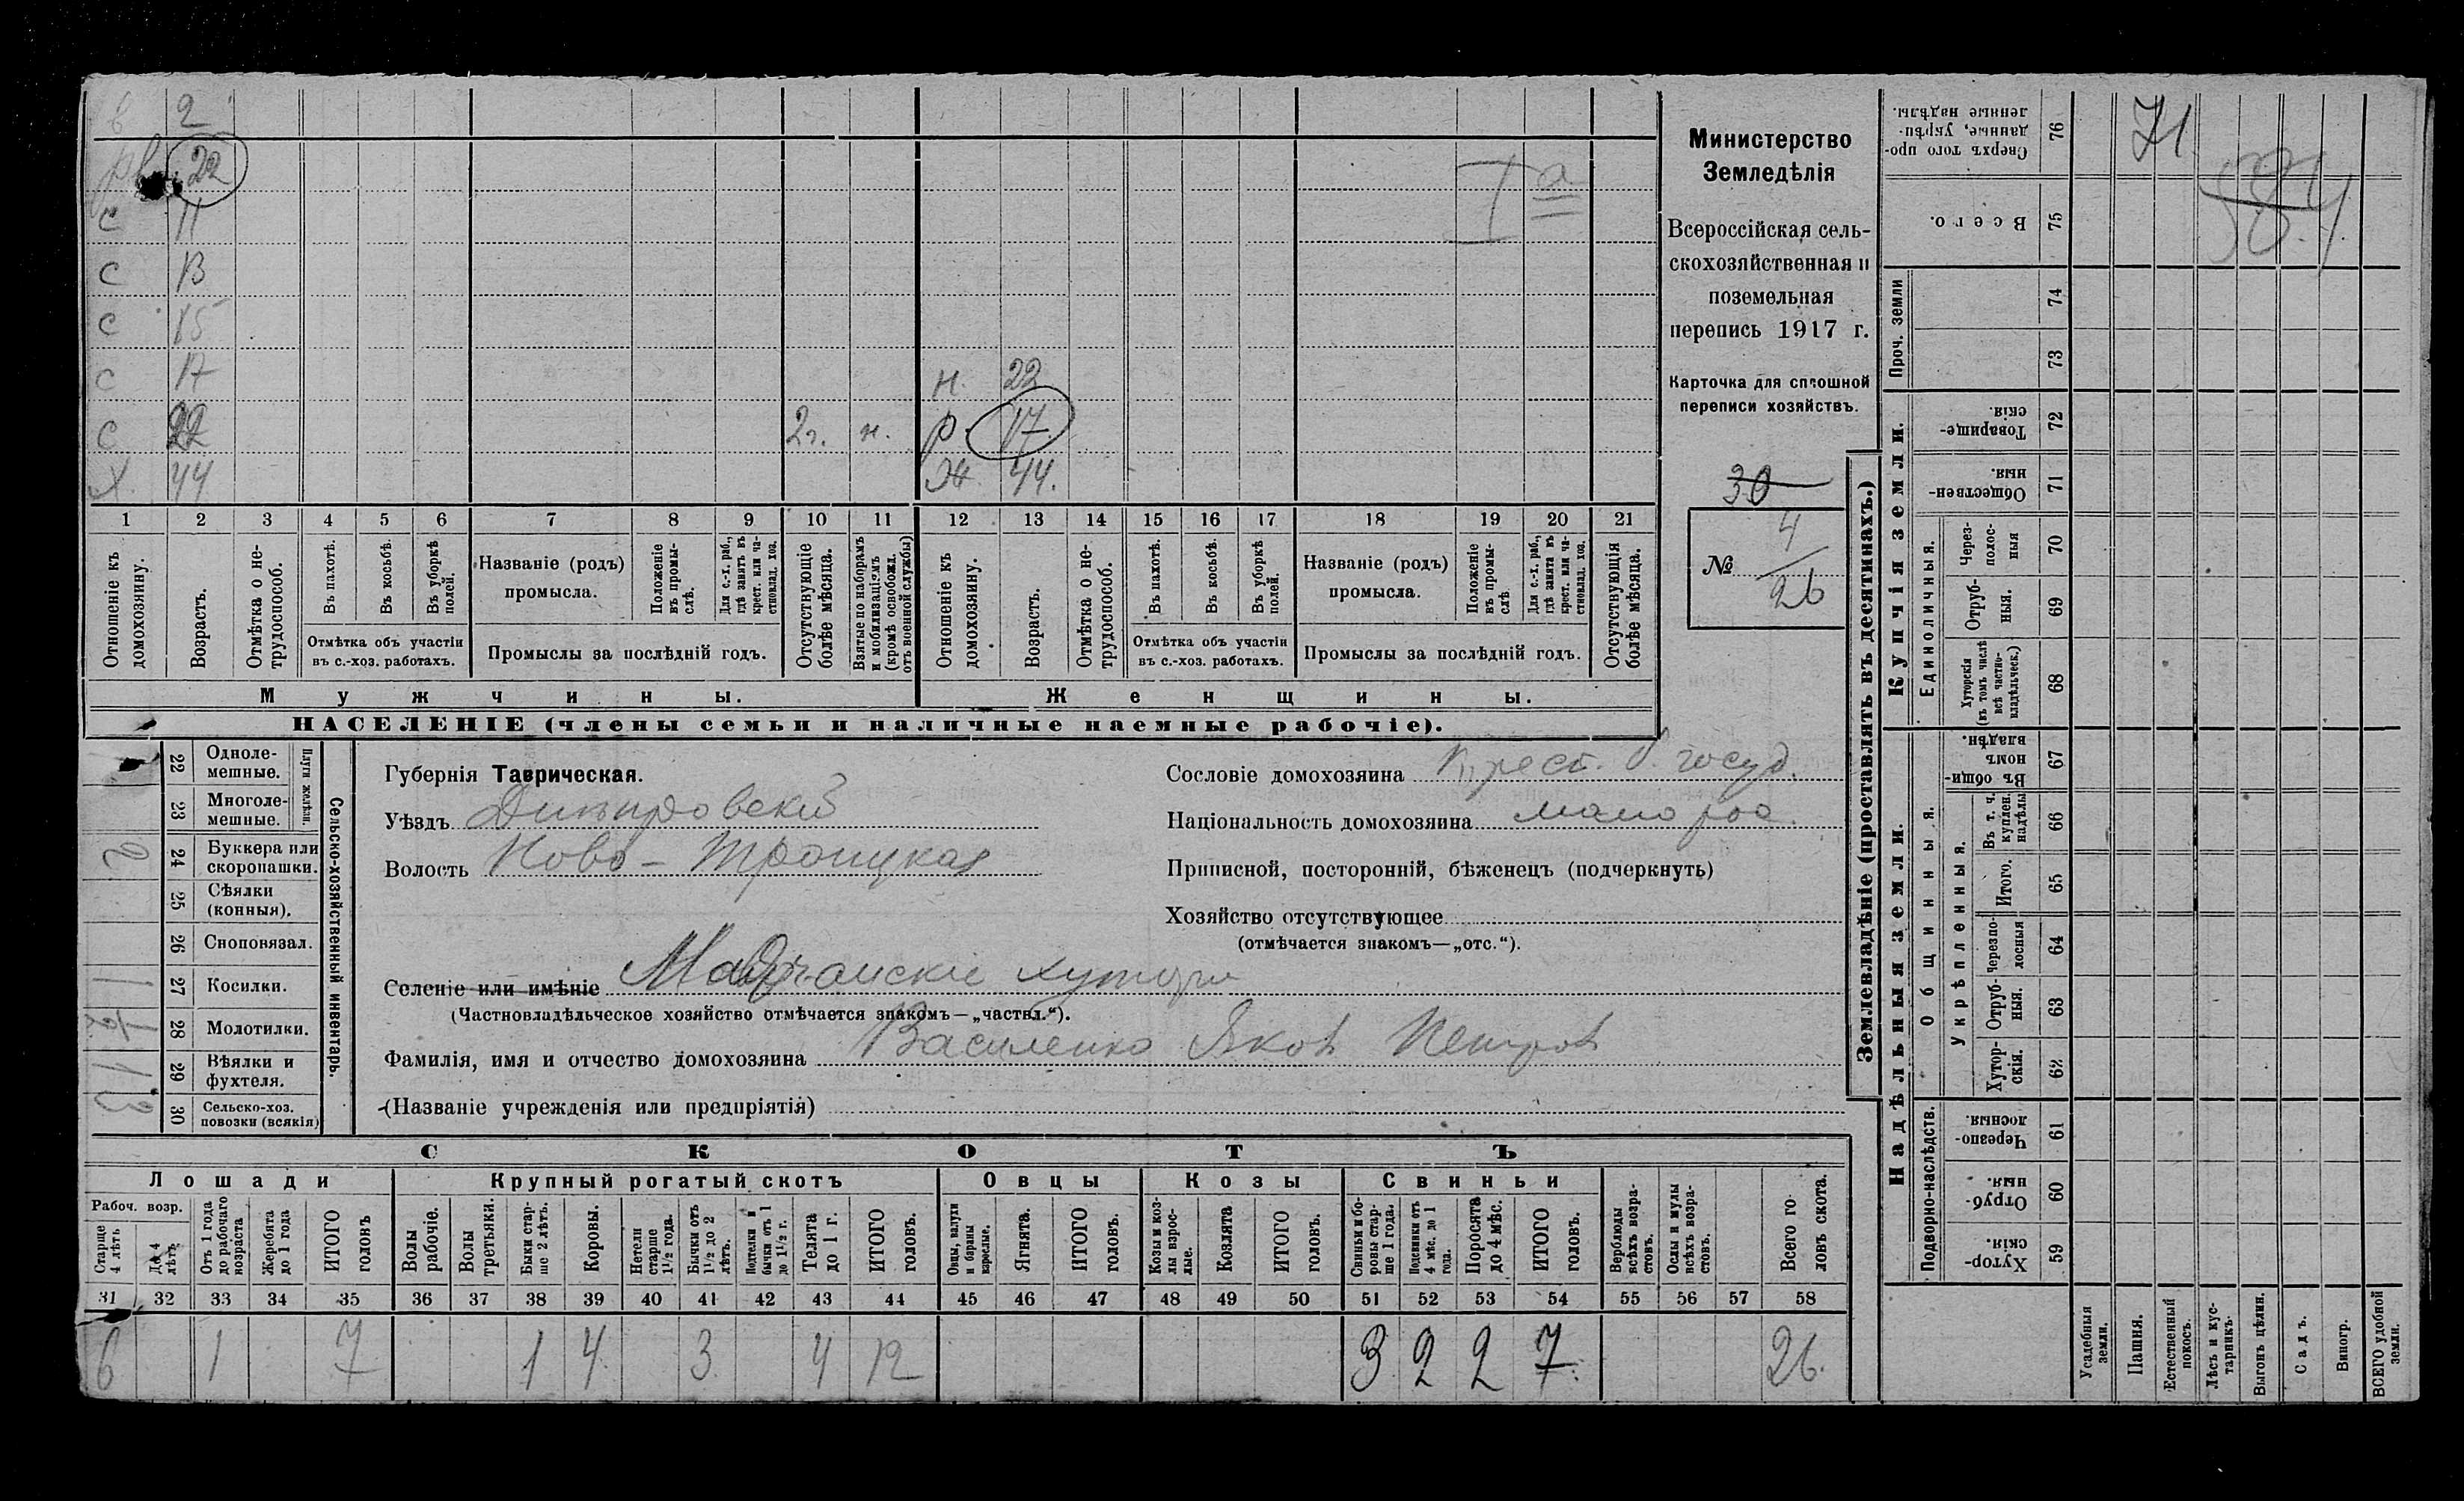 2
22
с 11
с 13
с 15
с 17
н. 22
с 22 2г. н. р. 17
х 44 ж. 44.
Iа
1 2 3 4 5 6 7 8 9 10 11 12 13 14 15 16 17 18 19 20 21
Отношеніе къ домохозяину.
Возрастъ.
Отмѣтка о не-трудоспособ.
Въ пахотѣ.
Въ косьбѣ.
Въ уборкѣ полей.
Отмѣтка объ участіи въ с.-хоз. работахъ.
Названіе (родъ) промысла.
Положеніе въ промы-слѣ.
Для с.-х. раб., гдѣ занятъ въ крест. или ча-стновлад. хоз.
Промыслы за послѣдній годъ.
Отсутствующіе болѣе мѣсяца.
Взятые по наборамъ и мобилизаціямъ (кромѣ освобожд. отъ военной службы)
Отношеніе къ домохозяину.
Возрастъ.
Отмѣтка о не-трудоспособ.
Въ пахотѣ.
Въ косьбѣ.
Въ уборкѣ полей.
Отмѣтка объ участіи въ с.-хоз. работахъ.
Названіе (родъ) промысла.
Положеніе въ промы-слѣ.
Для с.-х. раб., гдѣ занята въ крест. или ча-стновлад. хоз.
Промыслы за послѣдній годъ.
Отсутствующія болѣе мѣсяца.
Мужчины.
Женщины.
НАСЕЛЕНІЕ (члены семьи и наличные наемные рабочіе).
Министерство
Земледѣлія
Всероссійская сель-
скохозяйственная и
поземельная
перепись 1917 г.
Карточка для сплошной
переписи хозяйствъ.
30
№ 4/26
22 Одноле-мешные.
23 Многоле-мешные.
Плуги желѣзн.
2 24 Буккера или скоропашки.
25 Сѣялки (конныя).
26 Сноповязал.
1 27 Косилки.
28 Молотилки.
1 29 Вѣялки и фухтеля.
3 30 Сельско-хоз. повозки (всякія)
Сельско-хозяйственный инвентарь.
Губернія Таврическая.
Уѣздъ Днѣпровскій
Волость Ново-Троицкая
Сословіе домохозяина Крест. б. госуд.
Національность домохозяина мало рос.
Приписной, посторонній, бѣженецъ (подчеркнуть)
Хозяйство отсутствующее
(отмѣчается знакомъ—„отс.“).
Селеніе или имѣніе хутора
(Частновладѣльческое хозяйство отмѣчается знакомъ—„частвл.“).
Фамилія, имя и отчество домохозяина Василенко Яковъ Петровъ
(Названіе учрежденія или предпріятія)
СКОТЪ
Лошади
Крупный рогатый скотъ
Овцы
Козы
Свиньи
Рабоч. возр.
Старше 4 лѣтъ
До 4 лѣтъ
Отъ 1 года до рабочаго возраста
Жеребята до 1 года
ИТОГО головъ
Волы рабочіе.
Волы третьяки.
Быки стар-ше 2 лѣтъ.
Коровы.
Нетели старше 1½ года.
Бычки отъ 1½ до 2 лѣтъ.
Подтелки и бычки отъ 1 до 1½ г.
Телята до 1 г.
ИТОГО головъ.
Овцы, валухи и бараны взрослые.
Ягнята.
ИТОГО головъ.
Козы и коз-лы взрос-лые.
Козлята
ИТОГО головъ.
Свиньи и бо-ровы стар-ше 1 года.
Подсвинки отъ 4 мѣс. до 1 года.
Поросята до 4 мѣс.
ИТОГО головъ.
Верблюды всѣхъ возра-стовъ.
Ослы и мулы всѣхъ возра-стовъ.
Всего го-ловъ скота.
31 32 33 34 35 36 37 38 39 40 41 42 43 44 45 46 47 48 49 50 51 52 53 54 55 56 57 58
6 1 7 1 4 3 4 12 3 2 2 7 26.
Землевладѣніе (проставлять въ десятинахъ.)
Купчія земли.
Надѣльныя земли.
Сверхъ того про-данные, укрѣп-ленные надѣлы. 76
71
Всего. 75
Проч. земли 74
73
Товарище-скія. 72
Обществен-ныя. 71
Единоличныя.
Через-полос-ныя 70
Отруб-ныя. 69
Хуторскія (въ томъ числѣ всѣ частно-владѣльческ.) 68
Общинныя.
Въ общин-номъ владѣн. 67
Укрѣпленныя.
Въ т. ч. куплен. надѣлы 66
Итого. 65
Черезпо-лосныя 64
Отруб-ныя. 63
Хутор-скія. 62
Подворно-наслѣдств.
Черезпо-лосныя. 61
Отруб-ныя. 60
Хутор-скія. 59
Усадебныя земли.
Пашня.
Естественный покосъ.
Лѣсъ и кус-тарникъ.
Выгонъ цѣлин.
Садъ.
Виногр.
ВСЕГО удобной земли.